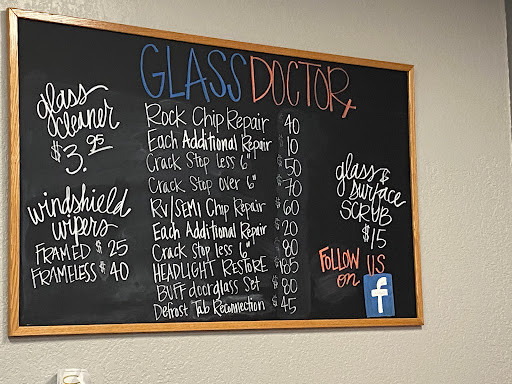 GLASS DOCTOR
glass
cleaner
$3.95
windshield
wipers
FRAMED $25
FRAMELESS $40
Rock Chip Repair 40
Each Additional Repair 10
Crack Stop less 6" 50
Crack Stop over 6" 70
RV/SEMI Chip Repair $60
Each Additional Repair 20
Crack Stop less 6" 80
HEADLIGHT RESTORE $185
BUFF doorglass Set $80
Defrost Tab Reconnection $45
glass &
surface
SCRUB
$15
FOLLOW US
on f